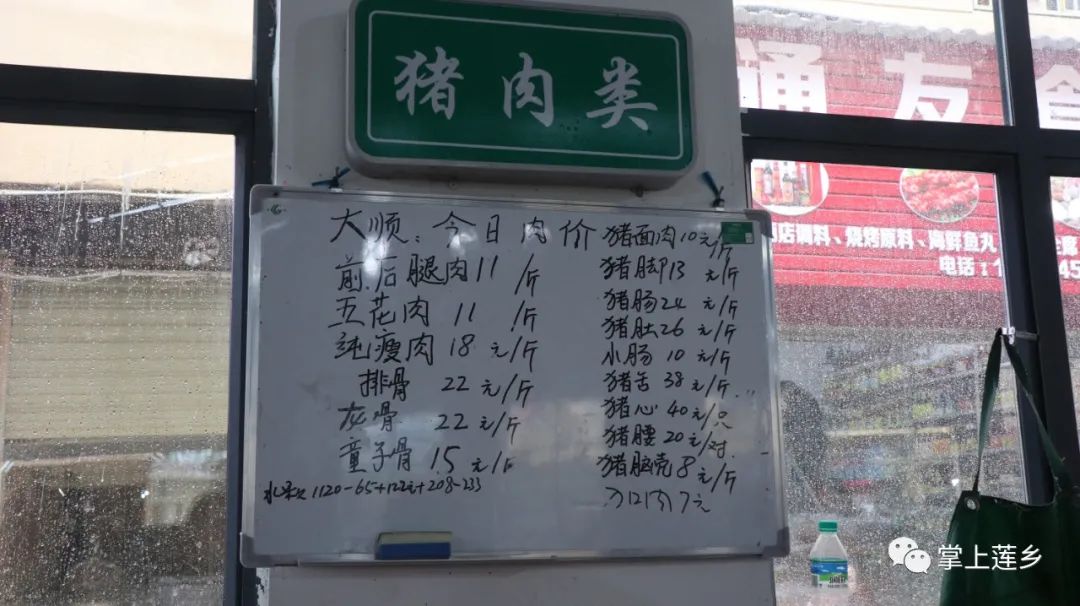 猪肉类
大顺：今日肉价
前后腿肉11 /斤
五花肉 11 /斤
纯瘦肉 18 元/斤
排骨 22 元/斤
灰骨 22 元/斤
童子骨 15 元/斤
1120-65+122+208-233
猪面肉10元/斤
猪脚13 元/斤
猪肠24 元/斤
猪肚26 元/斤
小肠 10 元/斤
猪舌 38元/斤
猪心 40元/只
猪腰 20元/对
猪脑壳 8元/斤
刀口肉7元
友食
店调料、烧烤原料、海鲜鱼丸
电话：1
掌上莲乡